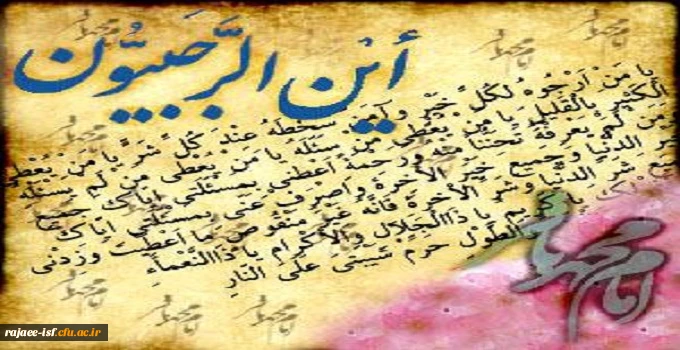 أَيْنَ الرَّجَبِيُّون
يا مَنْ أَرْجُوهُ لِكُلِّ خَيْرٍ وَ آمَنُ سَخَطَهُ عِنْدَ كُلِّ شَرٍّ يا مَنْ يُعْطِي
الْكَثِيرَ بِالْقَلِيلِ يا مَنْ يُعْطِي مَنْ سَئَلَهُ يا مَنْ يُعْطِي مَنْ لَمْ يَسْئَلْهُ
وَ مَنْ لَمْ يَعْرِفْهُ تَحَنُّناً مِنْهُ وَ رَحْمَةً اَعْطِنِي بِمَسْئَلَتِي اِيَّاكَ جَمِيعَ
خَيْرِ الدُّنْيا وَ جَمِيعَ خَيْرِ الْآخِرَةِ وَ اصْرِفْ عَنِّي بِمَسْئَلَتِي اِيَّاكَ
شَرِّ الدُّنْيا وَ شَرِّ الْآخِرَةِ فَاِنَّهُ غَيْرُ مَنْقُوصٍ ما اَعْطَيْتَ وَ زِدْنِي
يا كَرِيمُ يا ذَا الْجَلالِ وَ الْاِكْرامِ يا ذَا النَّعْمآءِ
وَ الطَّوْلِ حَرِّمْ شَيْبَتِي عَلَى النَّارِ
امام محمد باقر
rajaee-isf.cfu.ac.ir